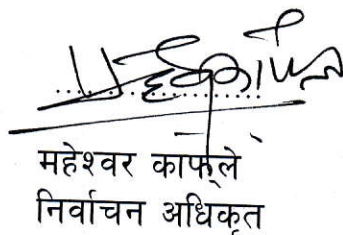 महेश्वर काफ्‌ले
निर्वाचन अधिकृत